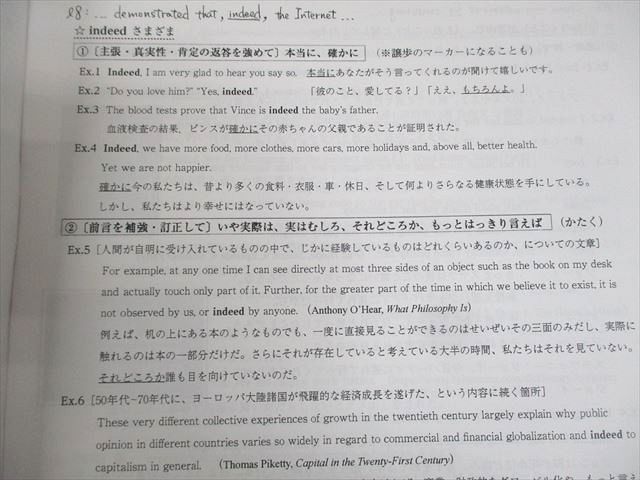 l8: ... demonstrated that, indeed, the Internet ...
☆ indeed さまざま
①［主張・真実性・肯定の返答を強めて］本当に、確かに （※譲歩のマーカーになることも）
Ex.1 Indeed, I am very glad to hear you say so. 本当にあなたがそう言ってくれるのが聞けて嬉しいです。
Ex.2 "Do you love him?" "Yes, indeed." 「彼のこと、愛してる？」「ええ、もちろんよ。」
Ex.3 The blood tests prove that Vince is indeed the baby's father.
血液検査の結果、ビンスが確かにその赤ちゃんの父親であることが証明された。
Ex.4 Indeed, we have more food, more clothes, more cars, more holidays and, above all, better health.
Yet we are not happier.
確かに今の私たちは、昔より多くの食料・衣服・車・休日、そして何よりさらなる健康状態を手にしている。
しかし、私たちはより幸せにはなっていない。
②［前言を補強・訂正して］いや実際は、実はむしろ、それどころか、もっとはっきり言えば （かたく）
Ex.5［人間が自明に受け入れているものの中で、じかに経験しているものはどれくらいあるのか、についての文章］
For example, at any one time I can see directly at most three sides of an object such as the book on my desk
and actually touch only part of it. Further, for the greater part of the time in which we believe it to exist, it is
not observed by us, or indeed by anyone. (Anthony O'Hear, What Philosophy Is)
例えば、机の上にある本のようなものでも、一度に直接見ることができるのはせいぜいその三面のみだし、実際に
触れるのは本の一部分だけだ。さらにそれが存在していると考えている大半の時間、私たちはそれを見ていない。
それどころか誰も目を向けていないのだ。
Ex.6［50年代~70年代に、ヨーロッパ大陸諸国が飛躍的な経済成長を遂げた、という内容に続く箇所］
These very different collective experiences of growth in the twentieth century largely explain why public
opinion in different countries varies so widely in regard to commercial and financial globalization and indeed to
capitalism in general. (Thomas Piketty, Capital in the Twenty-First Century)